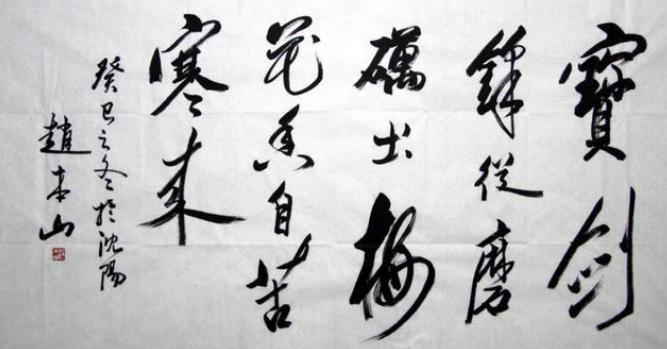 寶劍
鋒從磨
礪出梅
花香自苦
寒來
癸巳之冬於沈陽
趙本山